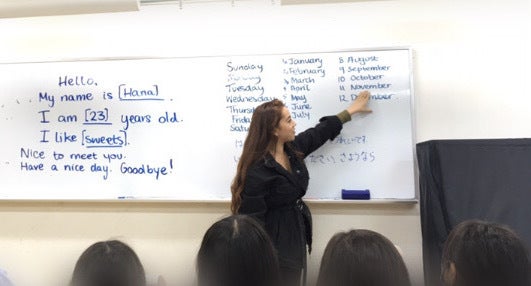 Hello.
My name is [Hana].
I am [23] years old.
I like [sweets].
Nice to meet you.
Have a nice day. Goodbye!
Sunday
Tuesday
Wednesday
January
February
March
April
May
June
July
8 August
9 September
10 October
11 November
12
さようなら